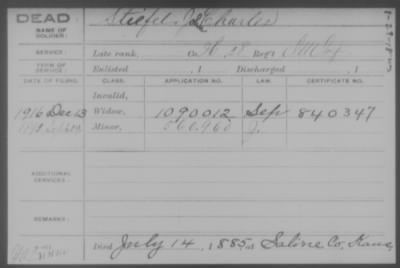 DEAD
NAME OF SOLDIER:
Stiefel, J. Charles
SERVICE:
Late rank, Co. H, 58 Reg't
TERM OF SERVICE:
Enlisted , 1 Discharged , 1
DATE OF FILING. CLASS. APPLICATION NO. LAW. CERTIFICATE NO.
Invalid,
1916 Dec 13 Widow, 1090012 Sep 840347
Minor, 560,960
ADDITIONAL SERVICES:
REMARKS:
Died July 14, 1885, at Saline Co, Kans,